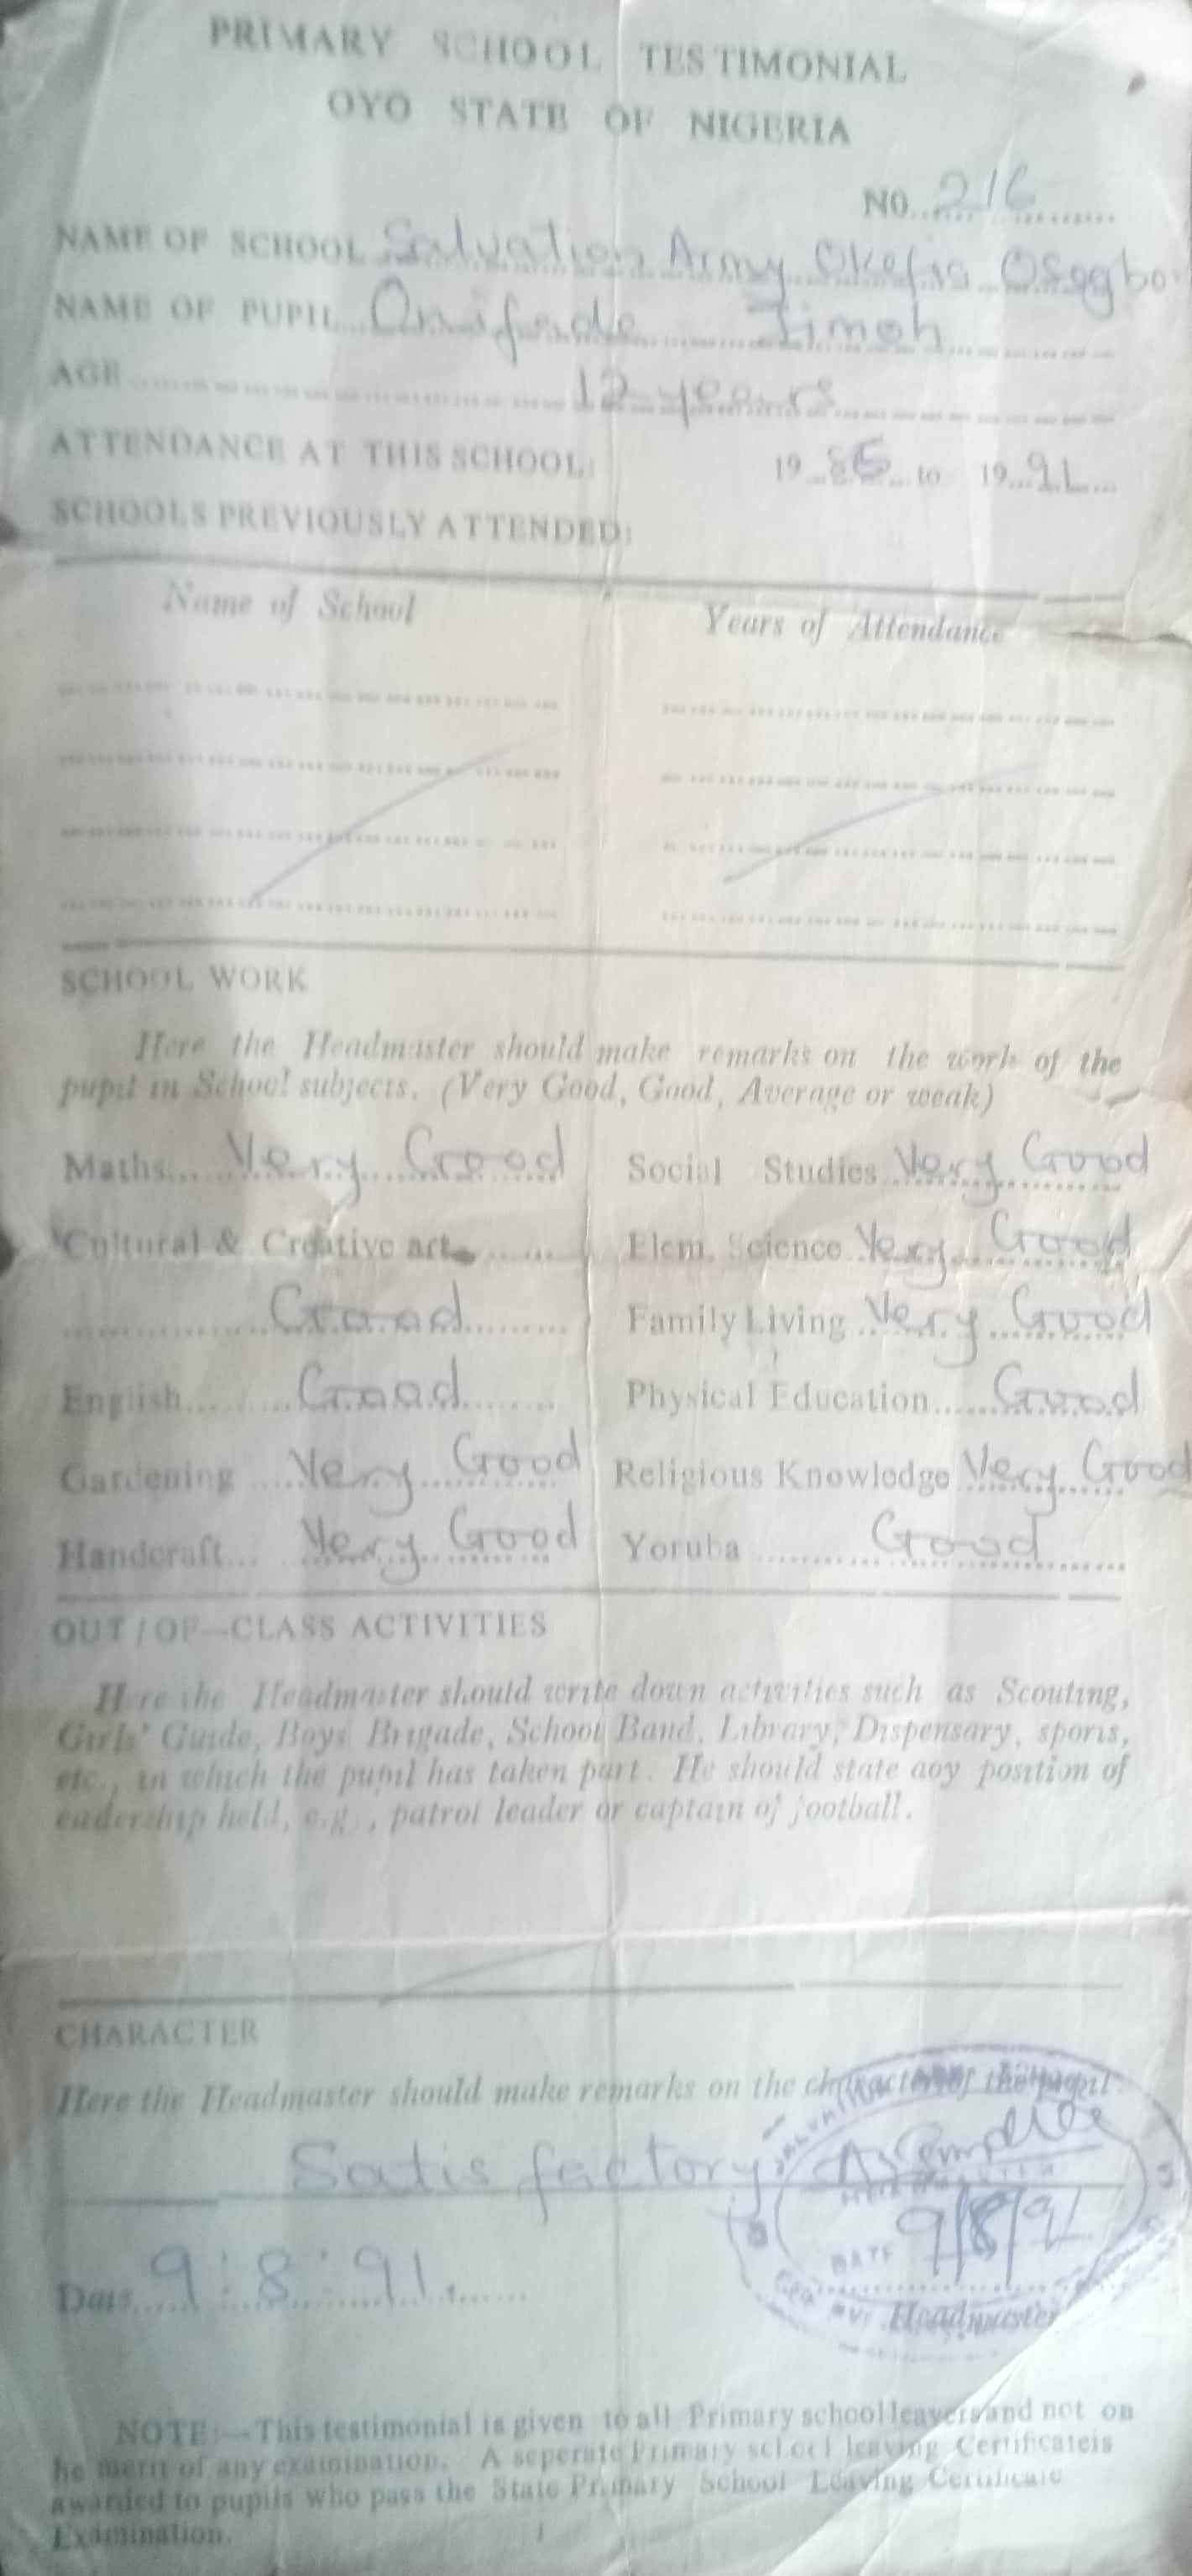 PRIMARY SCHOOL TESTIMONIAL
OYO STATE OF NIGERIA
NO. 216
NAME OF SCHOOL Salvation Army Okefia Osogbo.
NAME OF PUPIL Onifade Jimoh
AGE 12 years
ATTENDANCE AT THIS SCHOOL: 19 86 to 19 91
SCHOOLS PREVIOUSLY ATTENDED:
Name of School Years of Attendance
SCHOOL WORK
Here the Headmaster should make remarks on the work of the
pupil in School subjects. (Very Good, Good, Average or weak)
Maths... Very Good Social Studies Very Good
Cultural & Creative art Elem. Science Very Good
Good Family Living Very Good
English Good Physical Education Good
Gardening Very Good Religious Knowledge Very Good
Handcraft Very Good Yoruba Good
OUT/OF—CLASS ACTIVITIES
Here the Headmaster should write down activities such as Scouting,
Girls' Guide, Boys Brigade, School Band, Library, Dispensary, sports,
etc., in which the pupil has taken part. He should state aoy position of
eadership held, e.g., patrol leader or captain of football.
CHARACTER
Here the Headmaster should make remarks on the character of the pupil
Satisfactory
DATE 9/8/91
Date 9:8:91.
Headmaster
NOTE:—This testimonial is given to all Primary school leavers and not on
he merit of any examination. A seperate Primary school leaving Certificateis
awarded to pupils who pass the State Primary School Leaving Certificate
Examination.